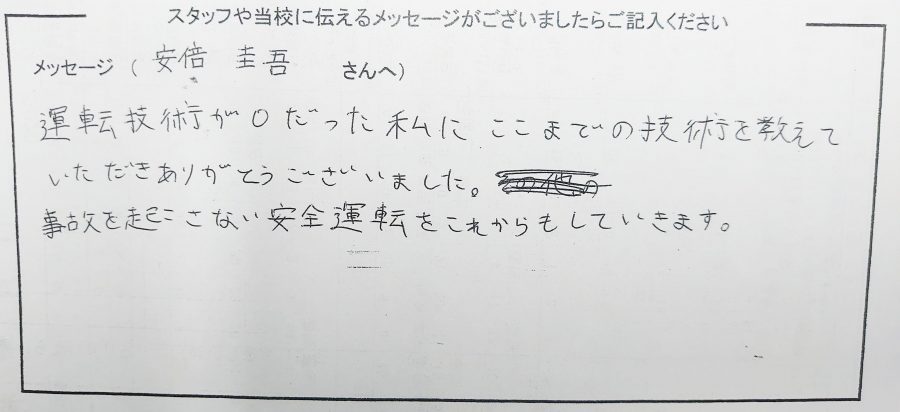 スタッフや当校に伝えるメッセージがございましたらご記入ください
メッセージ（ 安倍 圭吾 さんへ）
運転技術が0だった私に ここまでの技術を教えて
いただきありがとうございました。
事故を起こさない安全運転をこれからもしていきます。